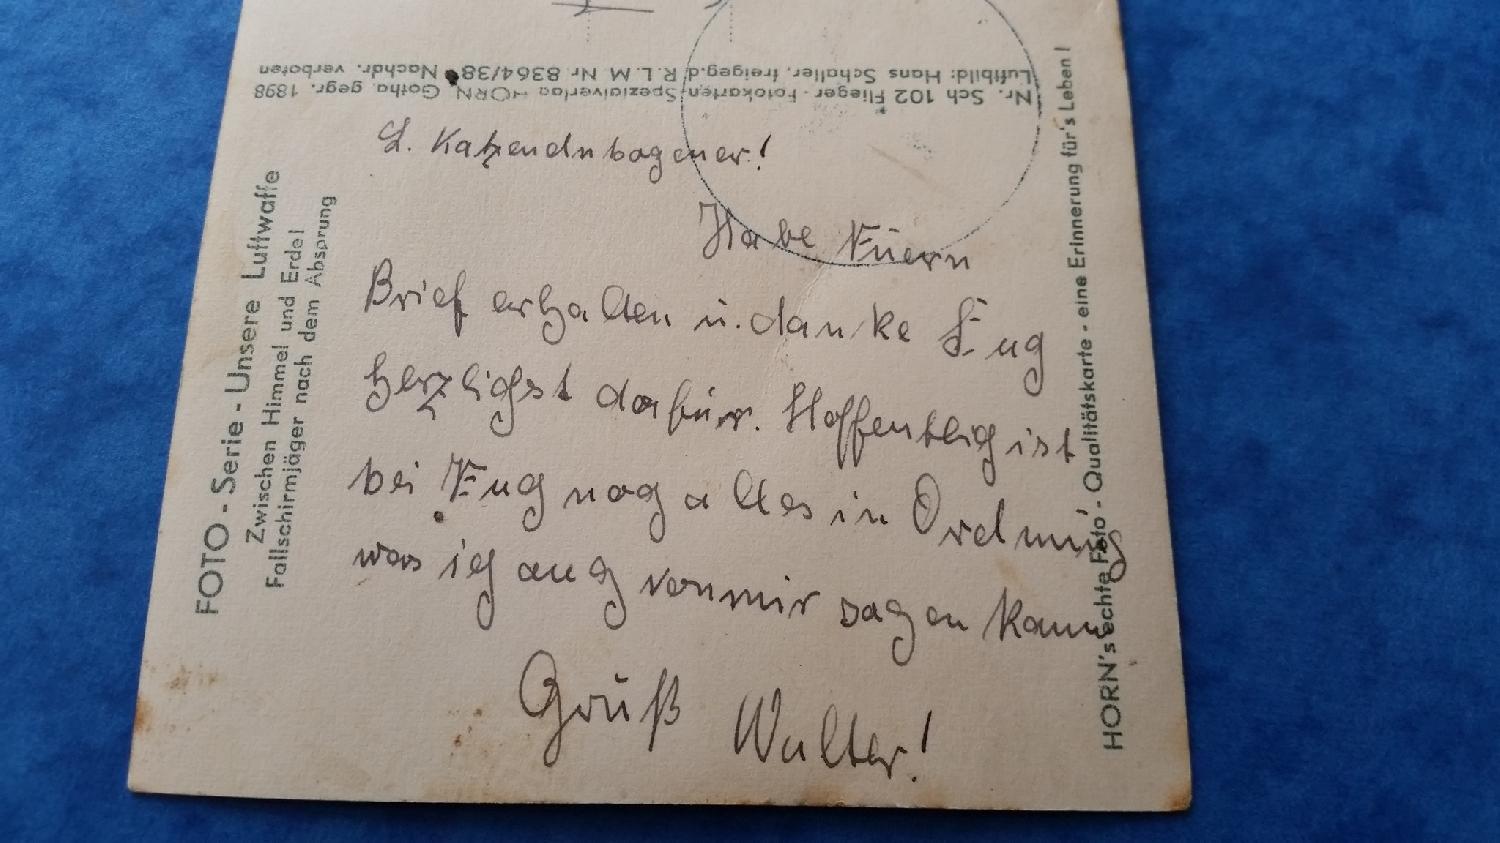 Nr. Sch 102 Flieger-Fotokarten-Spezialverlag HORN Gotha gegr. 1898
Luftbild: Hans Schaller, freigeg. d. R.L.M Nr 8364/38. Nachdr. verboten
FOTO - Serie - Unsere Luftwaffe
Zwischen Himmel und Erde!
Fallschirmjäger nach dem Absprung
L. Katzendnbogener!
Habe Euern
Brief erhalten u. danke Eug
herzlichst dafür. Hoffentlich ist
bei Euch noch alles in Ordnung
was ich auch von mir sagen kann
Gruß Walter!
HORN's echte Foto - Qualitätskarte - eine Erinnerung für's Leben!